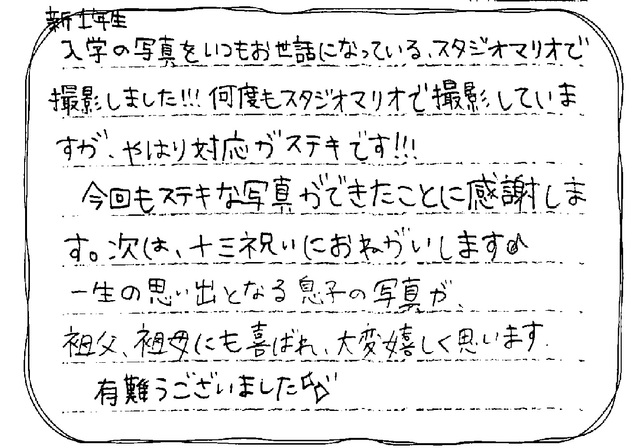 新1年生
入学の写真をいつもお世話になっている、スタジオマリオで
撮影しました!!! 何度もスタジオマリオで撮影していま
すが、やはり対応がステキです!!!
今回もステキな写真ができたことに感謝しま
す。次は、十三祝いにおねがいします♪
一生の思い出となる息子の写真が、
祖父、祖母にも喜ばれ、大変嬉しく思います.
有難うございました♪